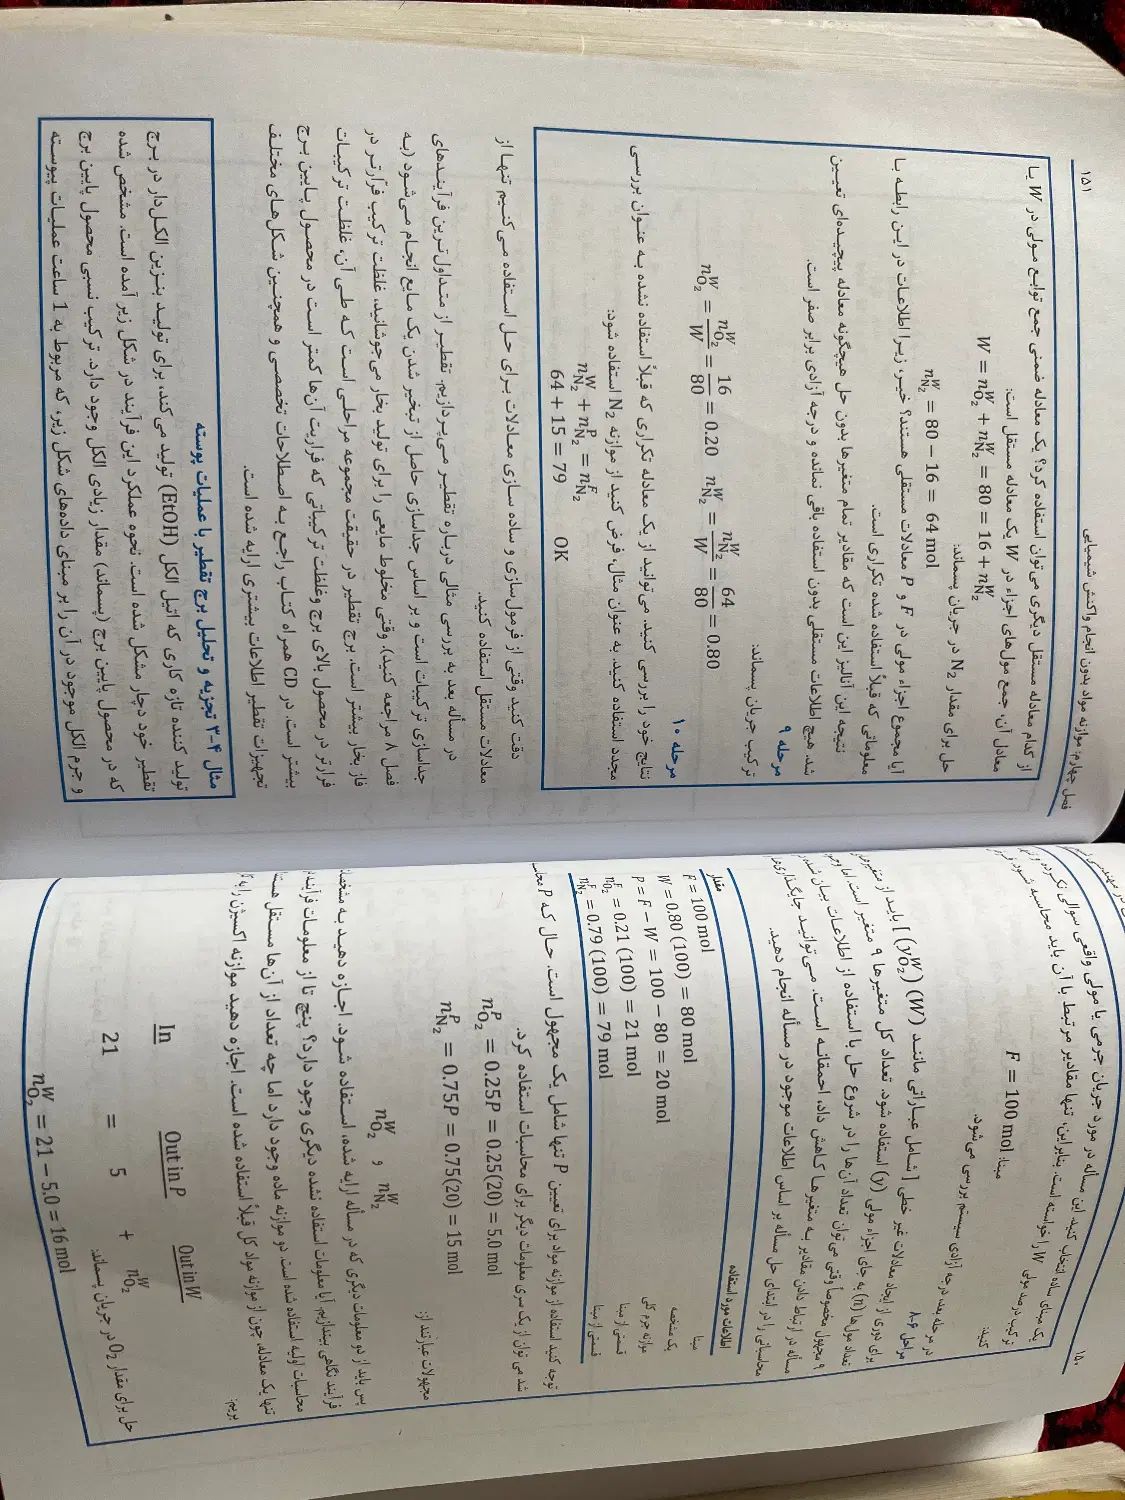 ۱۵۰
یک مبنای ساده انتخاب کنید. این مسأله در مورد جریان جرمی یا مولی واقعی سوالی نکرده و
ترکیب درصد مولی W را خواسته است. بنابراین، تنها مقادیر مرتبط با آن باید محاسبه شود.
کنید:
مبنا: F = 100 mol
در مرحله بعد، درجه آزادی سیستم بررسی می‌شود.
مراحل ۶-۸
برای دوری از ایجاد معادلات غیر خطی [شامل عباراتی مانند (W) (y_O₂^W)] باید از
تعداد مول‌ها (n) به جای اجزاء مولی (y) استفاده شود. تعداد کل متغیرها ۹ متغیر است.
۹ مجهول مخصوصاً وقتی می‌توان تعداد آن‌ها را در شروع حل با استفاده از اطلاعات بیان
مسأله در ارتباط دادن مقادیر به متغیرها کاهش داد، احمقانه است. می‌توانید
محاسباتی را در ابتدای حل مسأله بر اساس اطلاعات موجود در مسأله انجام دهید.
مقدار اطلاعات مورد استفاده
F = 100 mol مبنا
W = 0.80 (100) = 80 mol یک مشخصه
P = F − W = 100 − 80 = 20 mol موازنه جرم کلی
n_O₂^F = 0.21 (100) = 21 mol قسمتی از مبنا
n_N₂^F = 0.79 (100) = 79 mol قسمتی از مبنا
توجه کنید استفاده از موازنه مواد برای تعیین P تنها شامل یک مجهول است. حال که P
شد می‌توان از یک سری معلومات دیگر برای محاسبات استفاده کرد.
n_O₂^P = 0.25P = 0.25(20) = 5.0 mol
n_N₂^P = 0.75P = 0.75(20) = 15 mol
مجهولات عبارتند از:
n_N₂^W و n_O₂^W
پس باید از دو معلومات دیگری که در مسأله ارایه شده، استفاده شود. اجازه دهید به
فرآیند نگاهی بیندازیم. آیا معلومات استفاده نشده دیگری وجود دارد؟ پنج تا از معلومات
محاسبات اولیه استفاده شده است. دو موازنه ماده وجود دارد اما چه تعداد از آن‌ها مستقل
تنها یک معادله، چون از موازنه مواد کل قبلاً استفاده شده است. اجازه دهید موازنه اکسیژن را
بریم:
In Out in P Out in W
21 = 5 + n_O₂^W
حل برای مقدار O₂ در جریان پسماند:
n_O₂^W = 21 − 5.0 = 16 mol
فصل چهارم: موازنه مواد بدون انجام واکنش شیمیایی ۱۵۱
از کدام معادله مستقل دیگری می‌توان استفاده کرد؟ یک معادله ضمنی جمع توابع مولی در W یا
معادل آن، جمع مول‌های اجزاء در W یک معادله مستقل است:
W = n_O₂^W + n_N₂^W = 80 = 16 + n_N₂^W
حل برای مقدار N₂ در جریان پسماند:
n_N₂^W = 80 − 16 = 64 mol
آیا مجموع اجزاء مولی در F و P معادلات مستقلی هستند؟ خیر، زیرا اطلاعات در این رابطه با
معلوماتی که قبلاً استفاده شده تکراری است.
نتیجه این آنالیز این است که مقادیر تمام متغیرها بدون حل هیچگونه معادله پیچیده‌ای تعیین
شد. هیچ اطلاعات مستقلی بدون استفاده باقی نمانده و درجه آزادی برابر صفر است.
مرحله ۹
ترکیب جریان پسماند:
n_O₂^W = n_O₂^W / W = 16 / 80 = 0.20 n_N₂^W = n_N₂^W / W = 64 / 80 = 0.80
مرحله ۱۰
نتایج خود را بررسی کنید. می‌توانید از یک معادله تکراری که قبلاً استفاده نشده به عنوان بررسی
مجدد استفاده کنید. به عنوان مثال، فرض کنید از موازنه N₂ استفاده شود:
n_N₂^W + n_N₂^P = n_N₂^F
64 + 15 = 79 OK
دقت کنید وقتی از فرمول‌سازی و ساده سازی معادلات برای حل استفاده می‌کنیم تنها از
معادلات مستقل استفاده کنید.
در مسأله بعد به بررسی مثالی درباره تقطیر می‌پردازیم. تقطیر از متداول‌ترین فرآیندهای
جداسازی ترکیبات است و بر اساس جداسازی حاصل از تبخیر شدن یک مایع انجام می‌شود (به
فصل ۸ مراجعه کنید). وقتی مخلوط مایعی را برای تولید بخار می‌جوشانید، غلظت ترکیب فرّارتر در
فاز بخار بیشتر است. برج تقطیر در حقیقت مجموعه مراحلی است که طی آن، غلظت ترکیبات
فرارتر در محصول بالای برج وغلظت ترکیباتی که فراریت آن‌ها کمتر است در محصول پایین برج
بیشتر است. در CD همراه کتاب راجع به اصطلاحات تخصصی و همچنین شکل‌های مختلف
تجهیزات تقطیر اطلاعات بیشتری ارایه شده است.
مثال ۴-۳ تجزیه و تحلیل برج تقطیر با عملیات پوسته
تولید کننده تازه کاری که اتیل الکل (EtOH) تولید می کند، برای تولید بنزین الکل‌دار در برج
تقطیر خود دچار مشکل شده است. نحوه عملکرد این فرآیند در شکل زیر آمده است. مشخص شده
که در محصول پایین برج (پسماند) مقدار زیادی الکل وجود دارد. ترکیب نسبی محصول پایین برج
و جرم الکل موجود در آن را بر مبنای داده‌های شکل زیر، که مربوط به 1 ساعت عملیات پیوسته